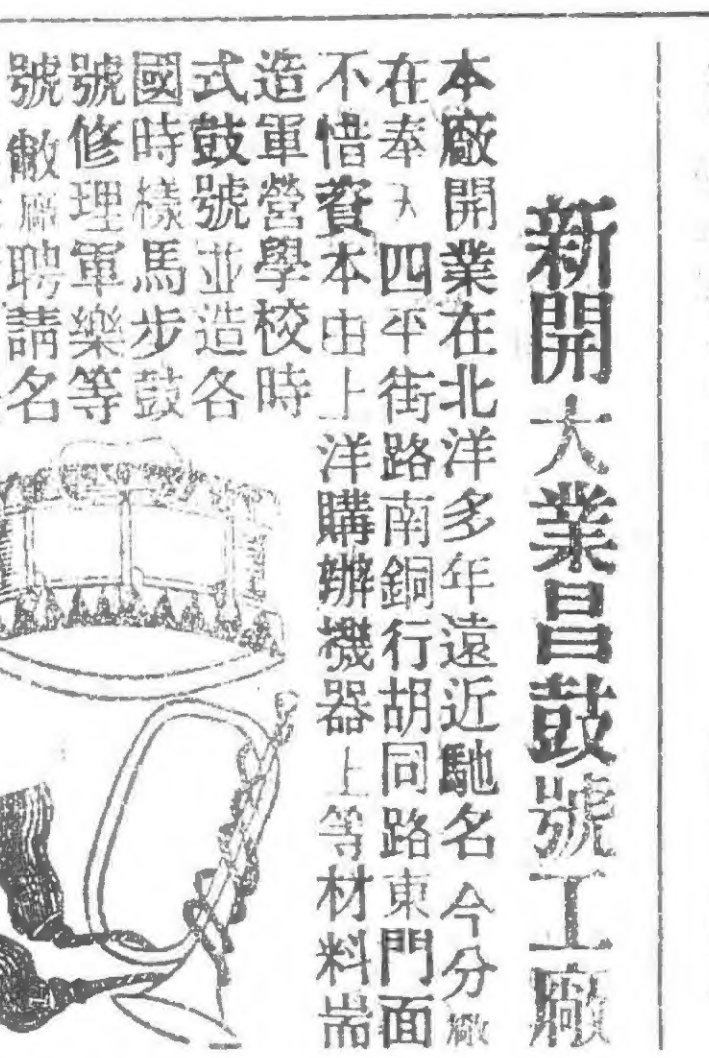 新開大業昌鼓號工廠
本廠開業在北洋多年遠近馳名今分廠
在奉天四平街路南銅行胡同路東門面
不惜資本由上洋購辦機器上等材料耑
造軍營學校時
式鼓號並造各
國時樣馬步鼓
號修理軍樂等
號敝廠聘請名